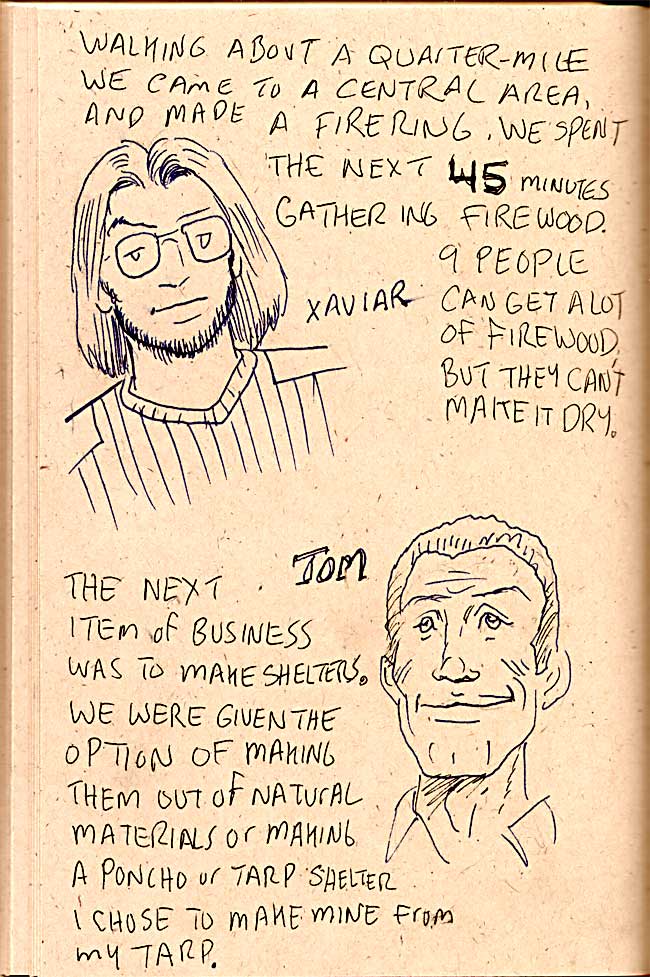 WALKING ABOUT A QUARTER-MILE
WE CAME TO A CENTRAL AREA,
AND MADE A FIRE RING. WE SPENT
THE NEXT 45 MINUTES
GATHERING FIREWOOD.
9 PEOPLE
CAN GET A LOT
OF FIREWOOD,
BUT THEY CAN'T
MAKE IT DRY.
XAVIAR
TOM
THE NEXT
ITEM OF BUSINESS
WAS TO MAKE SHELTERS.
WE WERE GIVEN THE
OPTION OF MAKING
THEM OUT OF NATURAL
MATERIALS OR MAKING
A PONCHO OR TARP SHELTER
I CHOSE TO MAKE MINE FROM
MY TARP.